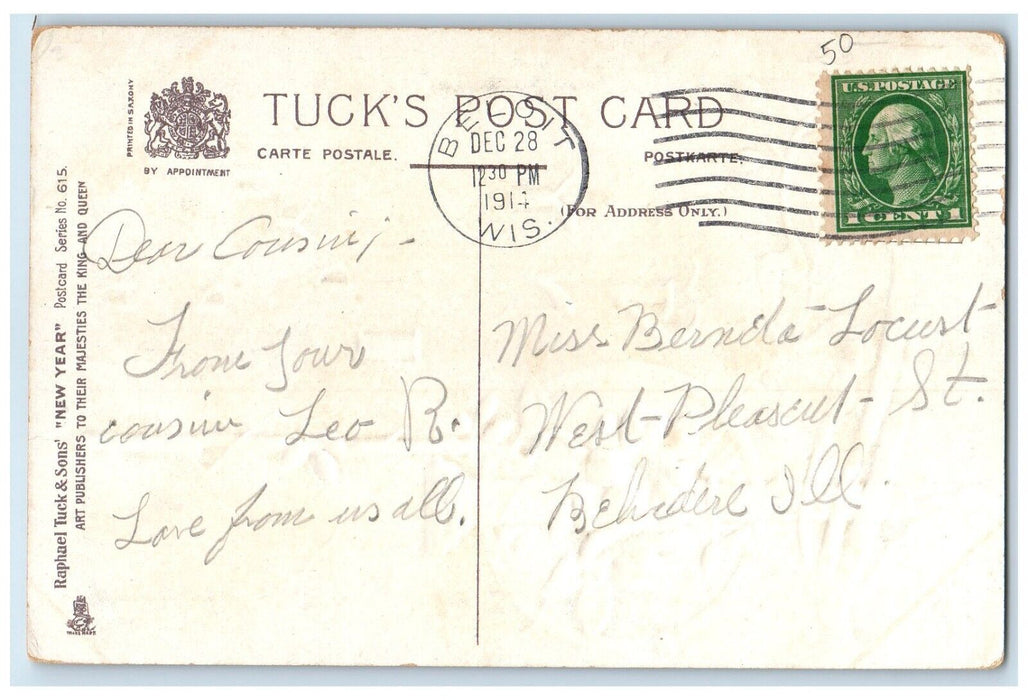 50
PRINTED IN SAXONY
BY APPOINTMENT
TUCK'S POST CARD
CARTE POSTALE.
POSTKARTE.
(FOR ADDRESS ONLY.)
BELOIT
DEC 28
12 30 PM
1914
WIS.
U.S. POSTAGE
1 CENT 1
Raphael Tuck & Sons' "NEW YEAR" Postcard Series No. 615.
ART PUBLISHERS TO THEIR MAJESTIES THE KING AND QUEEN
TRADE MARK
Dear Cousin; -
From your
cousin Leo R.
Love from us all.
Miss Locust
West Pleasent St.
Belvidere Ill.